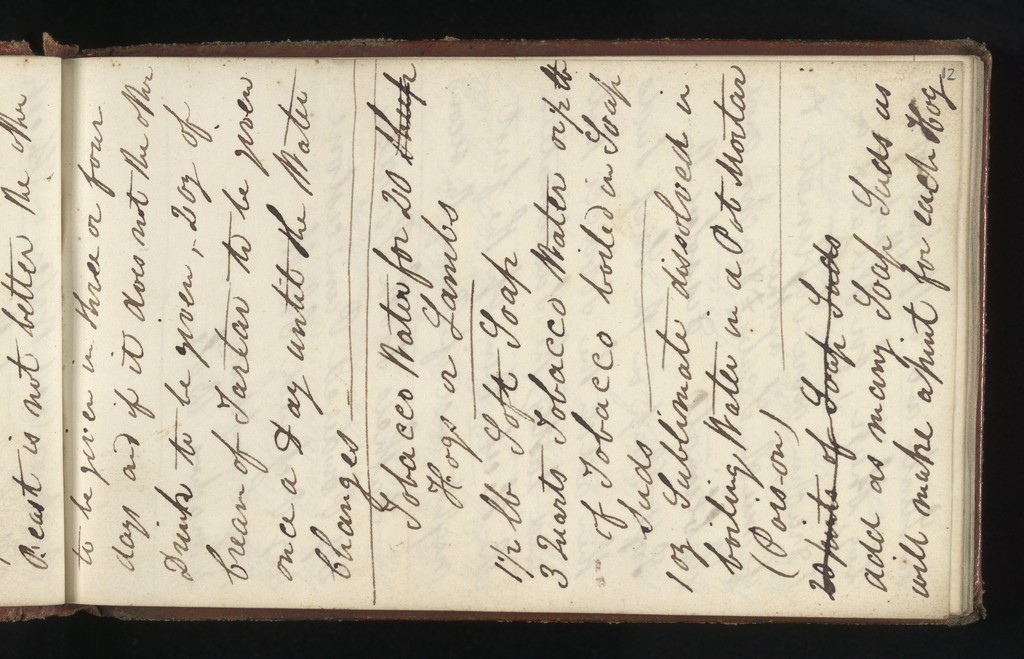 Beast is not better the other
12
to be given in three or four
days and if it does not the other
Drink to be given, 2oz of
Cream of Tartar to be given
once a Day until the Water
Changes
Tobacco Water for 20 Sheep
Hogs or Lambs
1½ lb Soft Soap
3 Quarts Tobacco Water or ½ lb
of Tobacco boiled in Soap
Suds
1 oz Sublimate dissolved in
boiling Water in a Pot Mortar
(Poison)
20 pints of Soap Suds
add as many Soap Suds as
will make a pint for each Hog